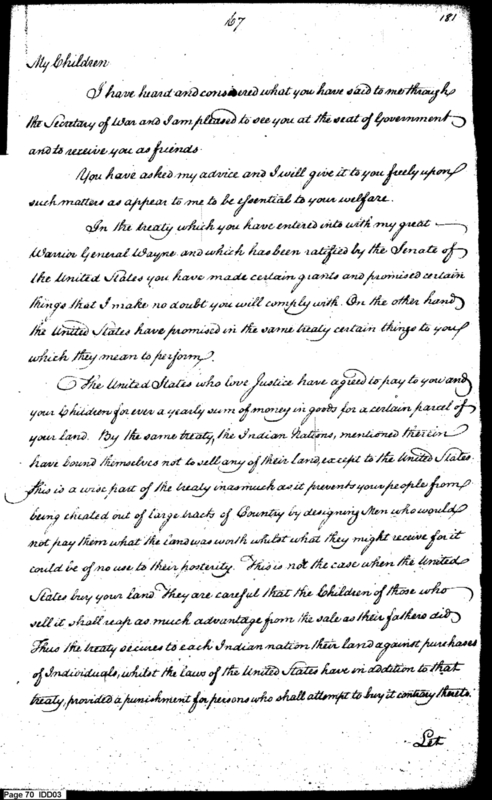 67
181
My Children
I have heard and considered what you have said to me through
the Secretary of War and I am pleased to see you at the seat of Government
and to receive you as friends.
You have asked my advice and I will give it to you freely upon
such matters as appear to me to be essential to your welfare.
In the treaty which you have entered into with my great
Warrior General Wayne and which has been ratified by the Senate of
the United States you have made certain grants and promised certain
things that I make no doubt you will comply with. On the other hand
the United States have promised in the same treaty certain things to you
which they mean to perform
The United States who love Justice have agreed to pay to you and
your Children for ever a yearly sum of money in goods for a certain parcel of
your land. By the same treaty, the Indian Nations, mentioned therein
have bound themselves not to sell any of their land, except to the United States
this is a wise part of the treaty inasmuch as it prevents your people from
being cheated out of large tracts of Country by designing Men who would
not pay them what the land was worth whilst what they might receive for it
could be of no use to their posterity. This is not the case when the United
States buy your Land They are careful that the Children of those who
sell it shall reap as much advantage from the sale as their fathers did
Thus the treaty secures to each Indian nation their land against purchases
of Individuals, whilst the laws of the United States have in addition to that
treaty, provided a punishment for persons who shall attempt to buy it contrary thereto.
Let
Page 70 IDD03